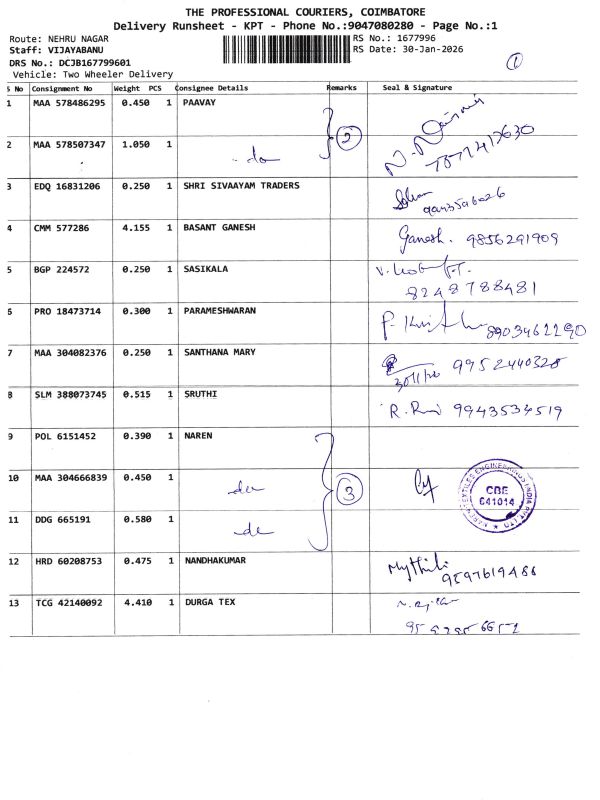 THE PROFESSIONAL COURIERS, COIMBATORE
Delivery Runsheet - KPT - Phone No.:9047080280 - Page No.:1
Route: NEHRU NAGAR
RS No.: 1677996
Staff: VIJAYABANU
RS Date: 30-Jan-2026
1
DRS No.: DCJB167799601
Vehicle: Two Wheeler Delivery
S No Consignment No Weight PCS Consignee Details Remarks Seal & Signature
1 MAA 578486295 0.450 1 PAAVAY
2
2 MAA 578507347 1.050 1 do
3 EDQ 16831206 0.250 1 SHRI SIVAAYAM TRADERS
4 CMM 577286 4.155 1 BASANT GANESH Ganesh. 9856291909
5 BGP 224572 0.250 1 SASIKALA
8248788481
6 PRO 18473714 0.300 1 PARAMESHWARAN 8903462290
7 MAA 304082376 0.250 1 SANTHANA MARY 9952440328
8 SLM 388073745 0.515 1 SRUTHI 9943534519
9 POL 6151452 0.390 1 NAREN
10 MAA 304666839 0.450 1 do 3
CBE
641014
11 DDG 665191 0.580 1 do
12 HRD 60208753 0.475 1 NANDHAKUMAR Mythili
9597619488
13 TCG 42140092 4.410 1 DURGA TEX